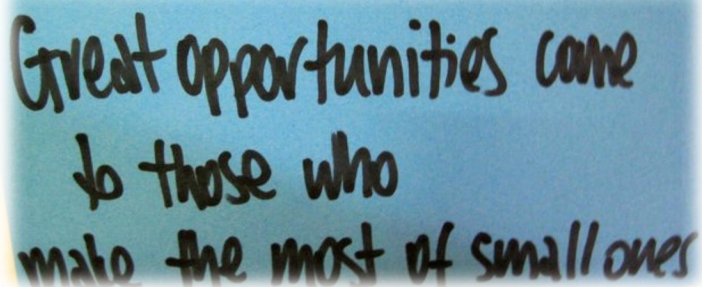 Great opportunities come
to those who
make the most of small ones